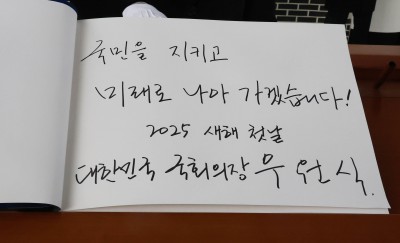 국민을 지키고
미래로 나아 가겠습니다!
2025 새해 첫날
대한민국 국회의장 우 원 식.